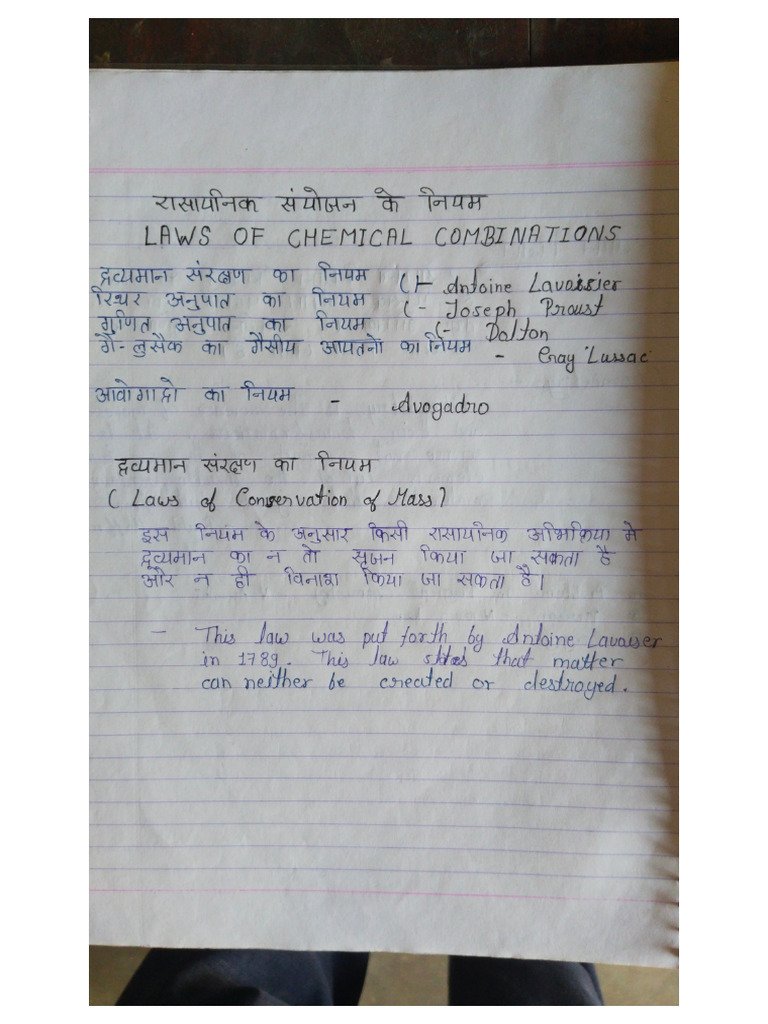 रासायनिक संयोजन के नियम
LAWS OF CHEMICAL COMBINATIONS
द्रव्यमान संरक्षण का नियम (- Antoine Lavoisier
स्थिर अनुपात का नियम (- Joseph Proust
गुणित अनुपात का नियम (- Dalton
गै-लुसैक का गैसीय आयतनों का नियम - Gray Lussac
आवोगाद्रो का नियम - Avogadro
द्रव्यमान संरक्षण का नियम
( Laws of Conservation of Mass)
इस नियम के अनुसार किसी रासायनिक अभिक्रिया मे
द्रव्यमान का न तो सृजन किया जा सकता है
और न ही विनाश किया जा सकता है।
- This law was put forth by Antoine Lavoiser
in 1789. This law states that matter
can neither be created or destroyed.